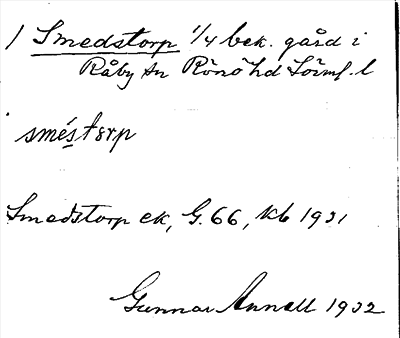 / Smedstorp 1/4 bek. gård i
Råby sn Rönö hd Söml. l
sméstorp
Smedstorp ek, G. 66, kb 1931
Gunnar Annell 1932